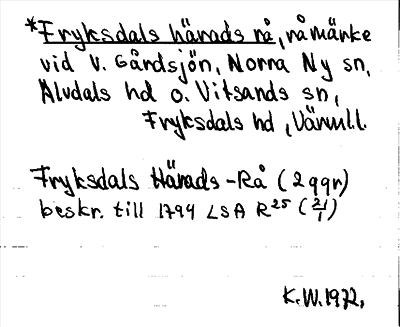 *Fryksdals härads rå, råmärke
vid V. Gårdsjön, Norra Ny sn,
Älvdals hd o. Vitsands sn,
Fryksdals hd, Värml.
Fryksdals Härads-Rå (2 ggr)
beskr. till 1794 LSA R25 (21/1)
K.W. 1972.